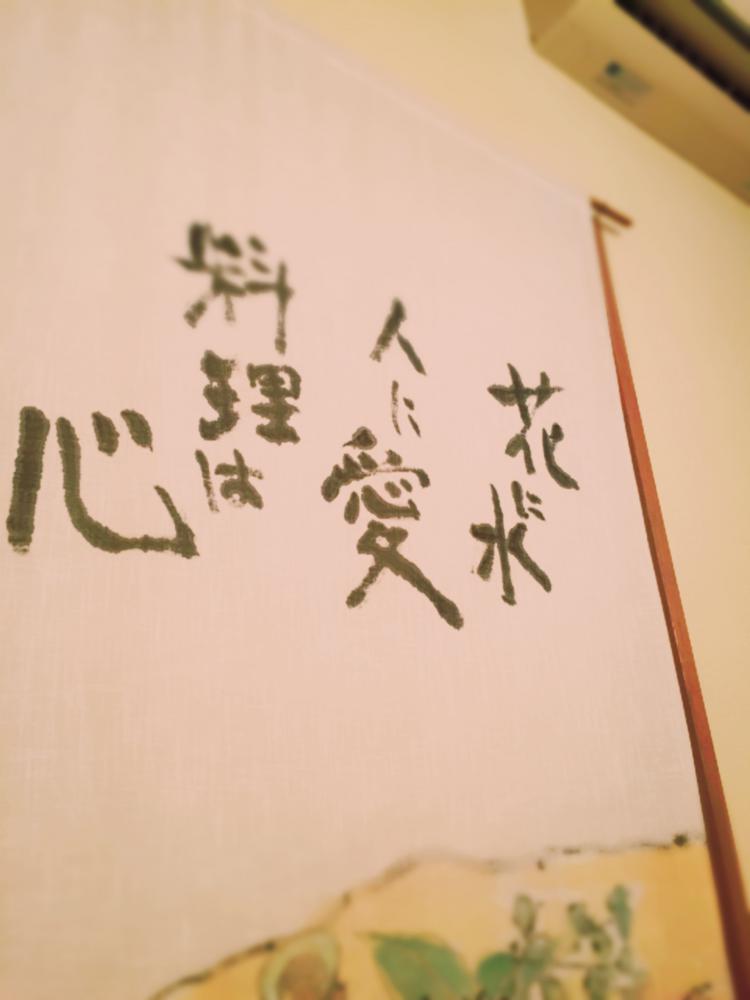 花に水
人に愛
料理は
心